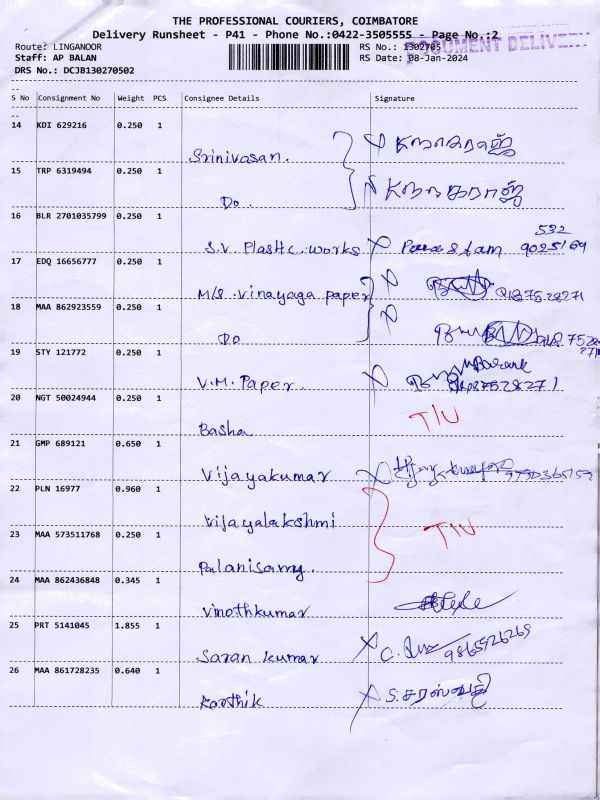 THE PROFESSIONAL COURIERS, COIMBATORE
Delivery Runsheet - P41 - Phone No.:0422-3505555 - Page No.:2
DOCUMENT DELIVERY
Route: LINGANOOR
RS No.: 1302705
Staff: AP BALAN
RS Date: 08-Jan-2024
DRS No.: DCJB130270502
S No Consignment No Weight PCS Consignee Details Signature
14 KDI 629216 0.250 1
Srinivasan.
15 TRP 6319494 0.250 1
Do.
16 BLR 2701035799 0.250 1
S.V. Plastic works
17 EDQ 16656777 0.250 1
M/s. Vinayaga paper
18 MAA 862923559 0.250 1
Do
19 STY 121772 0.250 1
V.M. Paper.
20 NGT 50024944 0.250 1 T/U
Basha
21 GMP 689121 0.650 1
Vijayakumar
22 PLN 16977 0.960 1
Vijayalakshmi
23 MAA 573511768 0.250 1 T/U
Palanisamy.
24 MAA 862436848 0.345 1
Vinothkumar
25 PRT 5141045 1.855 1
Saran kumar 9865526265
26 MAA 861728235 0.640 1
Karthik